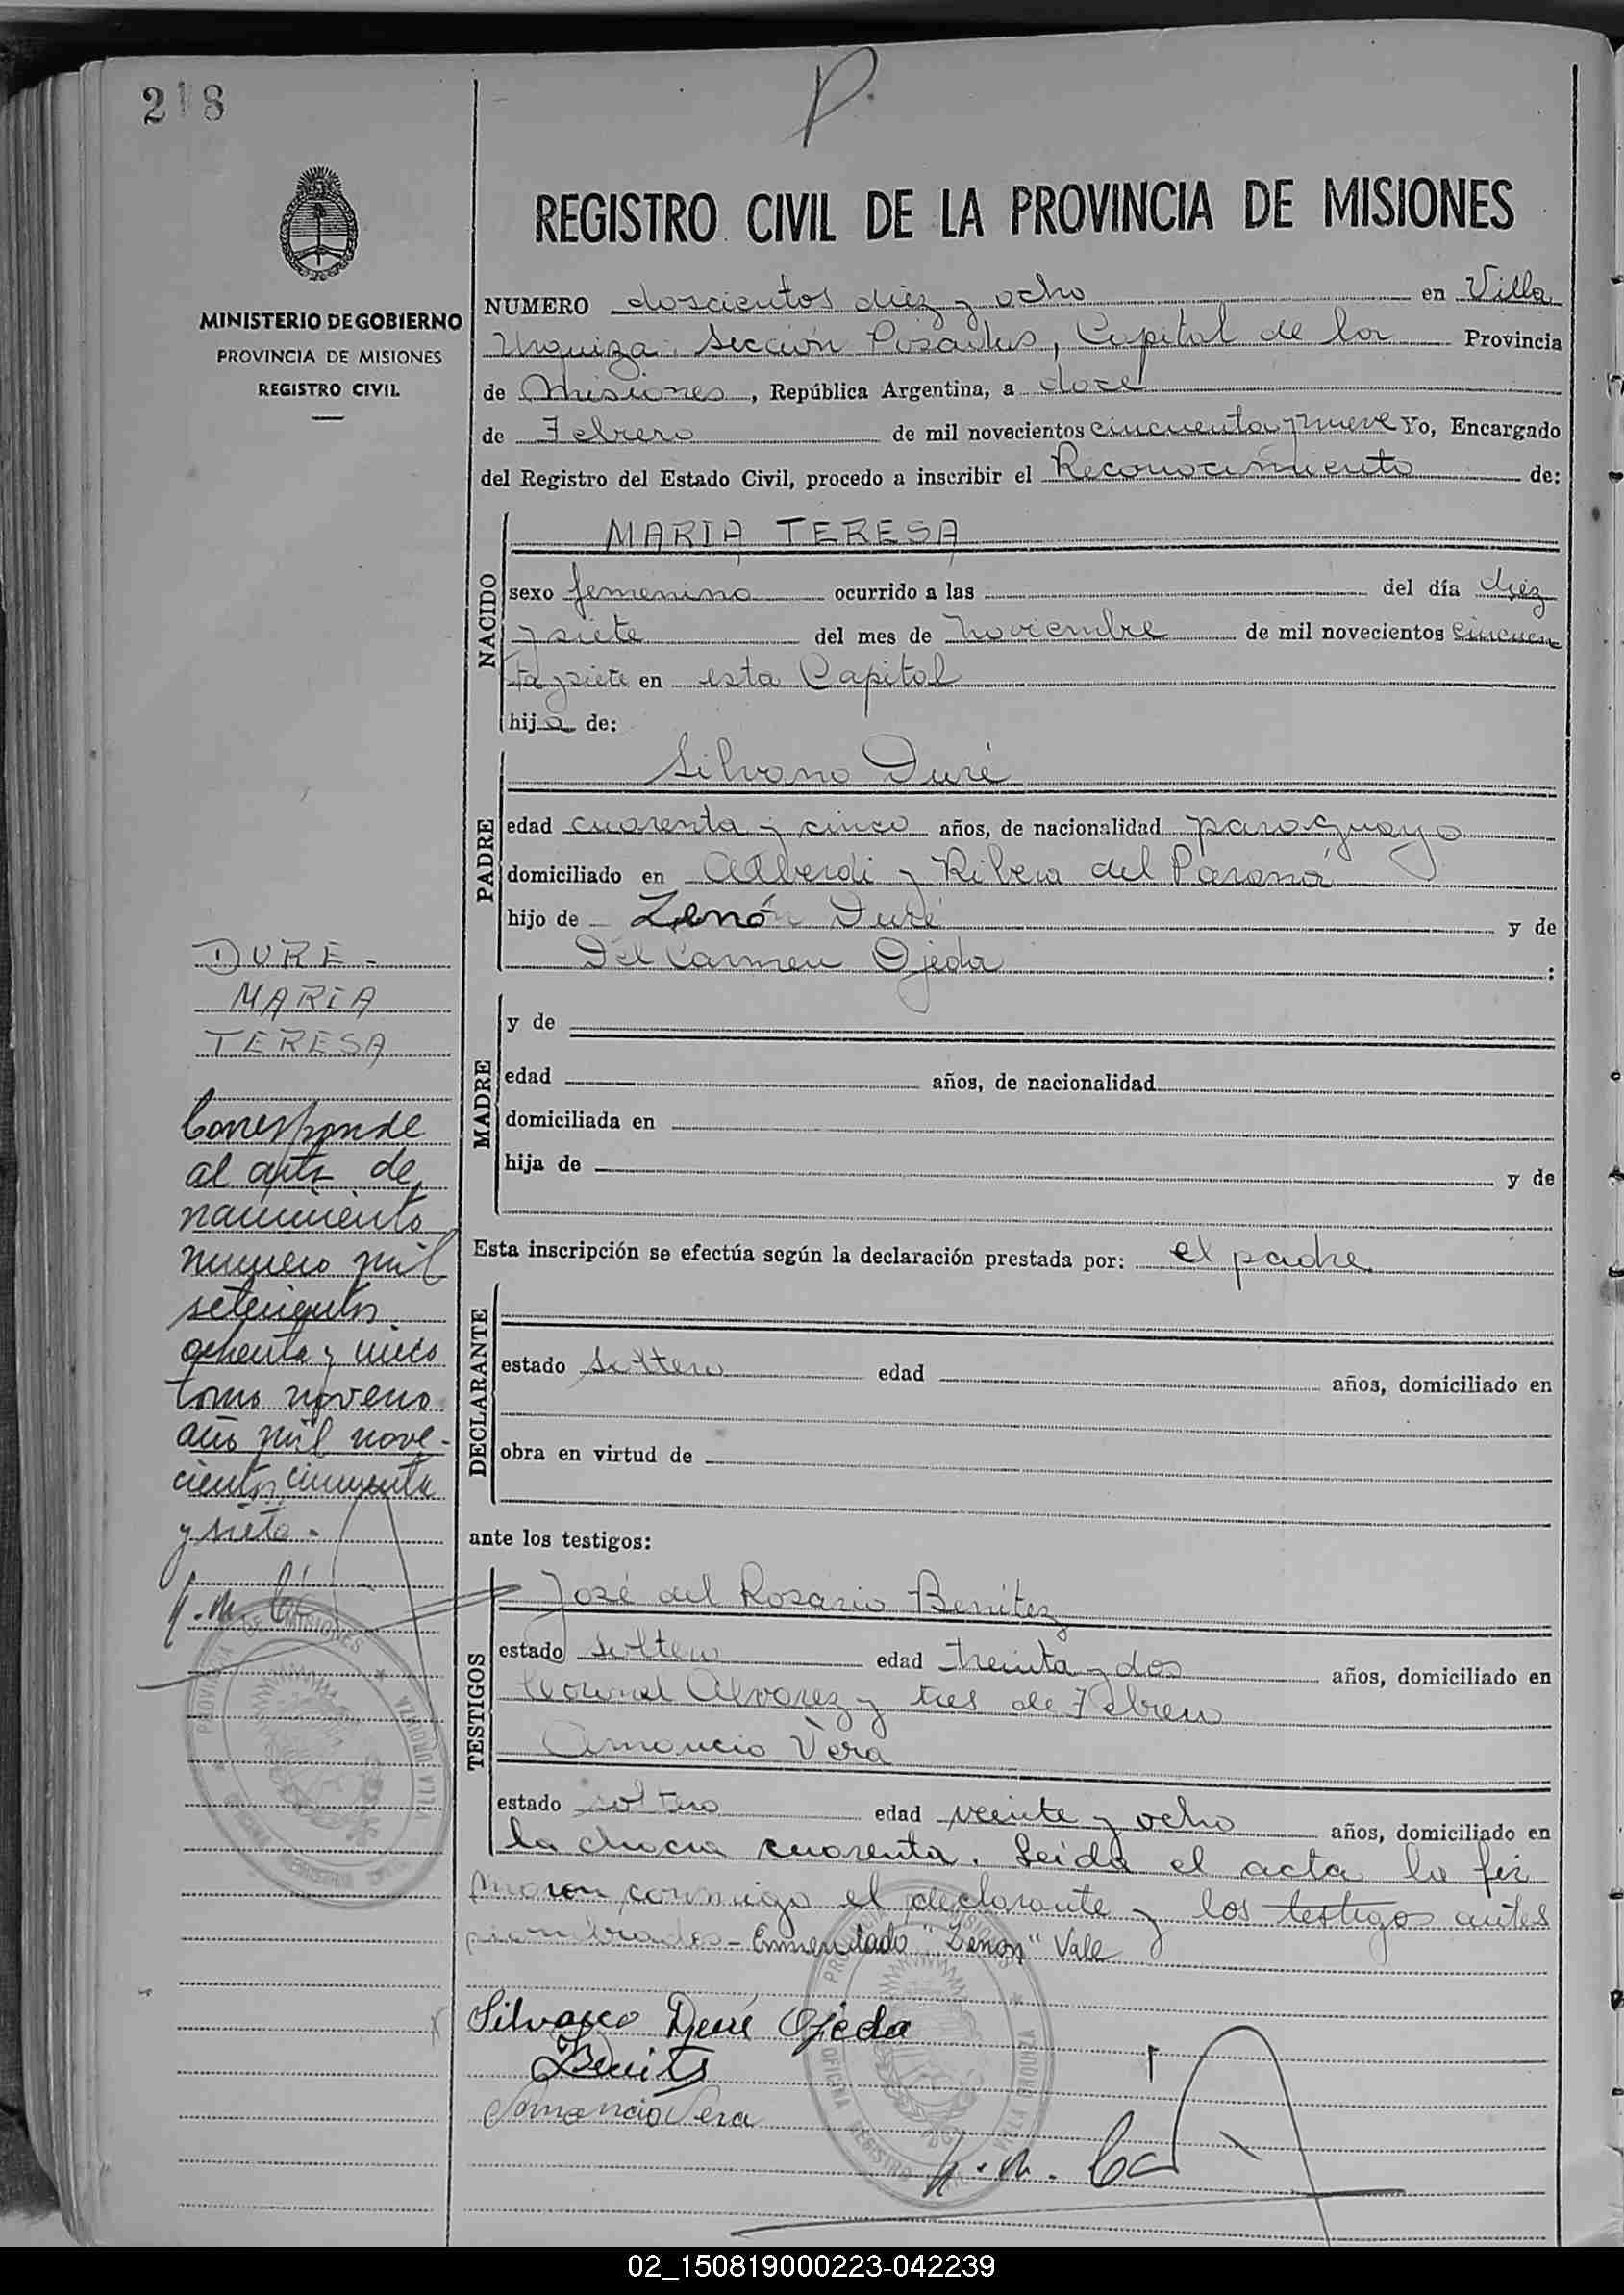 218
P.
REGISTRO CIVIL DE LA PROVINCIA DE MISIONES
MINISTERIO DE GOBIERNO
PROVINCIA DE MISIONES
REGISTRO CIVIL
NUMERO doscientos diez y ocho en Villa
Urquiza, Sección Posadas, Capital de la Provincia
de Misiones, República Argentina, a doce
de Febrero de mil novecientos cincuenta y nueve Yo, Encargado
del Registro del Estado Civil, procedo a inscribir el Reconocimiento de:
NACIDO
MARIA TERESA
sexo femenino ocurrido a las del día diez
y siete del mes de noviembre de mil novecientos cincuen
ta y siete en esta Capital
hija de:
PADRE
Silvano Duré
edad cuarenta y cinco años, de nacionalidad paraguayo
domiciliado en Alberdi y Ribera del Paraná
hijo de Zenón Duré y de
Del Carmen Ojeda :
MADRE
y de
edad años, de nacionalidad
domiciliada en
hija de y de
Esta inscripción se efectúa según la declaración prestada por: el padre
DECLARANTE
estado soltero edad años, domiciliado en
obra en virtud de
ante los testigos:
TESTIGOS
José del Rosario Benítez
estado soltero edad treinta y dos años, domiciliado en
Coronel Alvarez y tres de Febrero
Amancio Vera
estado soltero edad veinte y ocho años, domiciliado en
la chacra cuarenta. Leida el acta la fir
maron conmigo el declarante y los testigos antes
nombrados - Enmendado "Zenón" Vale
Silvano Duré Ojeda
Benits
Amancio Vera
DURE -
MARIA
TERESA
Corresponde
al acta de
nacimiento
numero mil
setecientos
ochenta y cinco
tomo noveno
año mil nove-
cientos cincuenta
y siete.
PROVINCIA DE MISIONES
VILLA URQUIZA
PROVINCIA MISIONES
OFICINA REGISTRO
VILLA URQUIZA
02_150819000223-042239